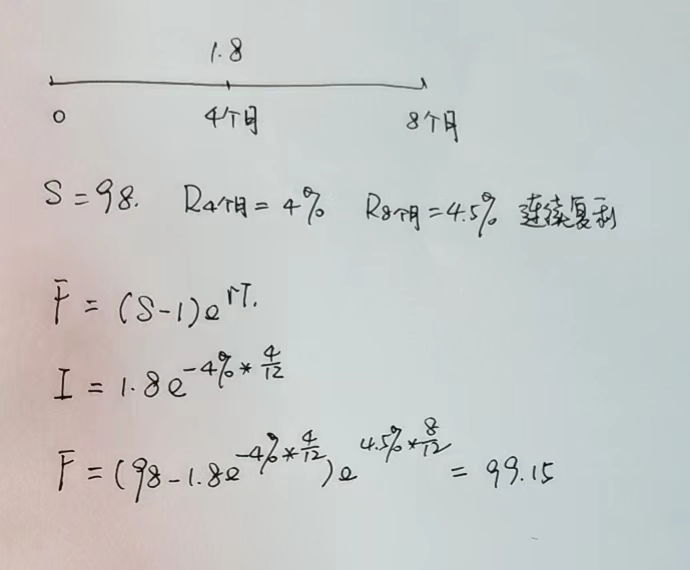 1.8
0 4个月 8个月
S=98. R4个月=4% R8个月=4.5% 连续复利
F=(S-1)e^rT.
I=1.8e^-4%*4/12
F=(98-1.8e^-4%*4/12)e^4.5%*8/12=99.15